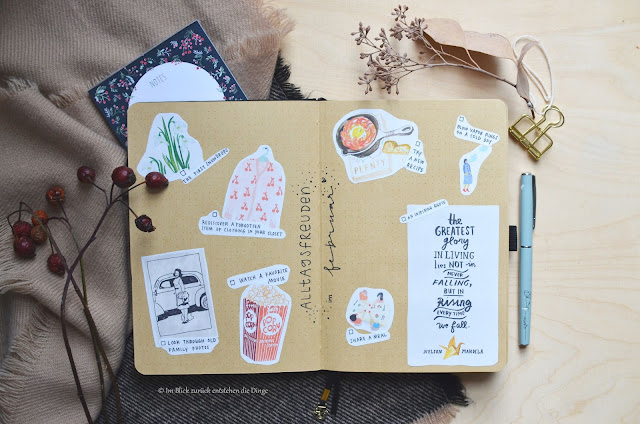 NOTES
THE FIRST SNOWDROPS
REDISCOVER A FORGOTTEN
ITEM OF CLOTHING IN YOUR CLOSET
LOOK THROUGH OLD
FAMILY PHOTOS
WATCH A FAVORITE
MOVIE
POP
CORN
ALLTAGSFREUDEN
im februar
PLENTY
TRY
A NEW
RECIPE
BLOW VAPOR RINGS
ON A COLD DAY
SHARE A MEAL
AN INSPIRING QUOTE
the
GREATEST
glory
IN LIVING
lies NOT in
NEVER
FALLING,
BUT IN
Rising
EVERYTIME
we fall.
NELSON MANDELA
© Im Blick zurück entstehen die Dinge